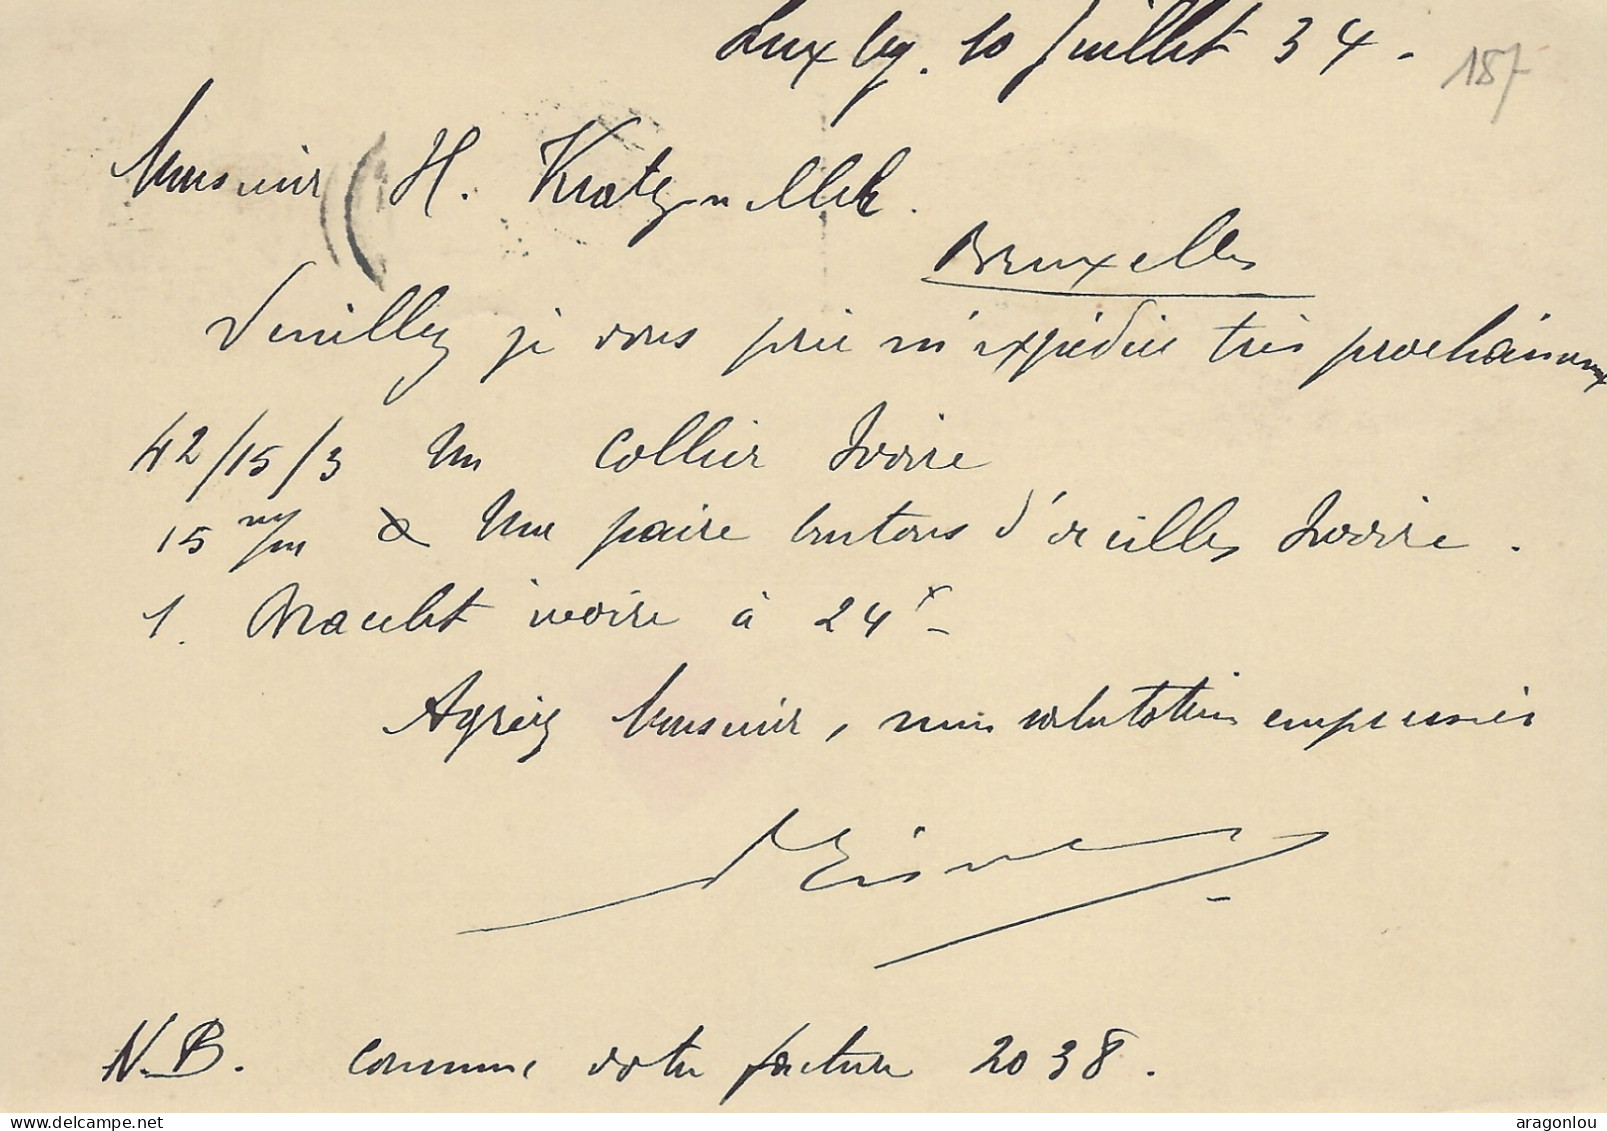 Luxbg. 10 Juillet 34.
187
Monsieur H.
Bruxelles
Veuillez je vous prie m'expédier très prochainemt
42/15/3 Un Collier Ivoire
15 m/m & Une paire boutons d'oreilles Ivoire.
1. Bracelet ivoire à 24 fr
Agréez Monsieur, mes salutations empressées
N.B. comme votre facture 2038.
aragonlou